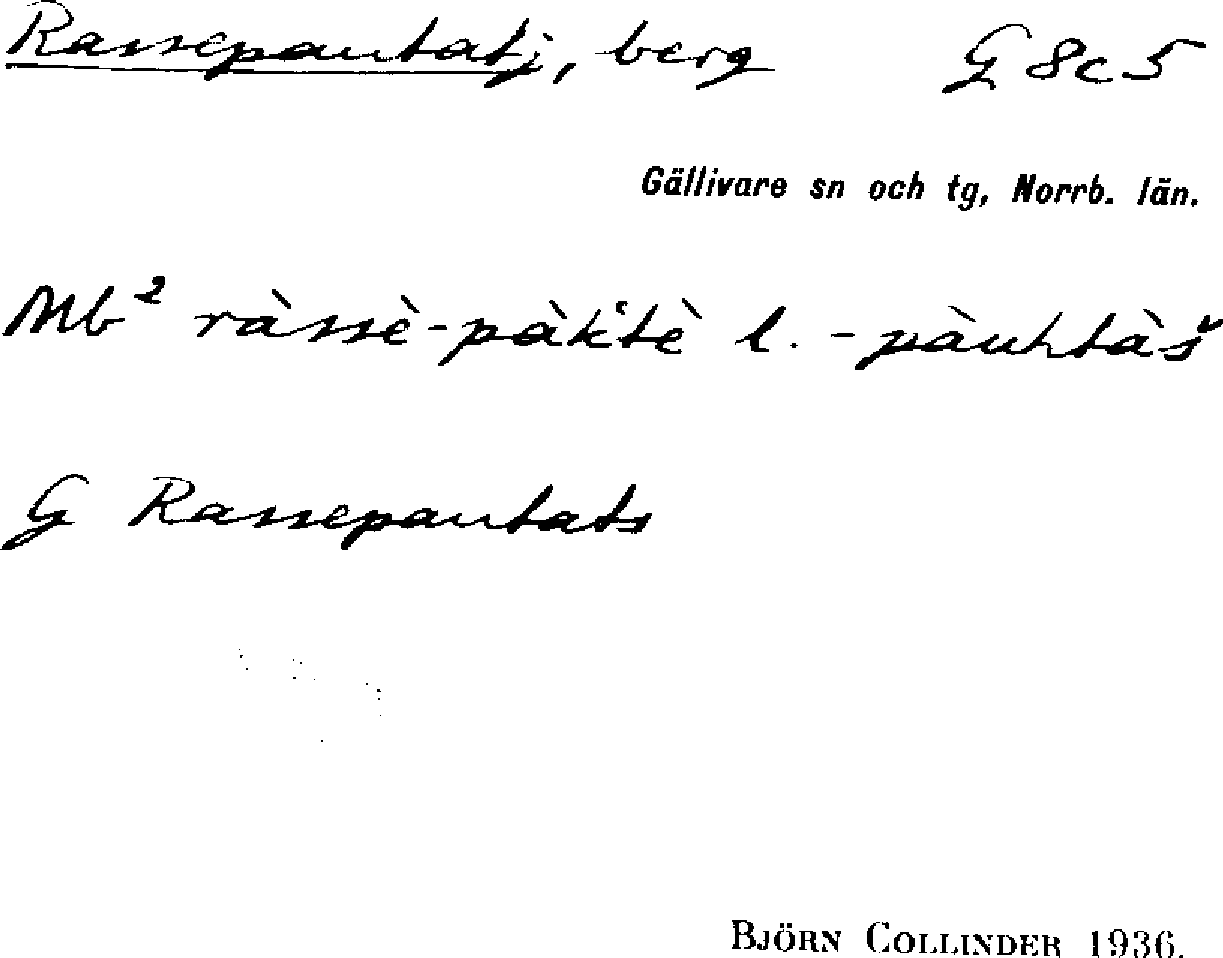 Rassepautatj, berg G 8c5
Gällivare sn och tg, Norrb. län.
Mb² ràssè-pàk̀tè l. -pàuhtàš
G Rassepautats
BJÖRN COLLINDER 1936.